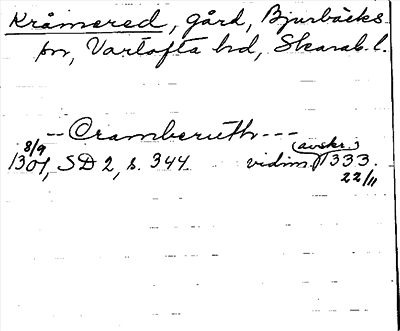 Kråmered, gård, Bjurbäcks
sn, Vartofta hd, Skarab. l.
-- Cramberuth ---
8/9 (avskr.)
1301, SD 2, s. 344 vidim. 1333.
22/11